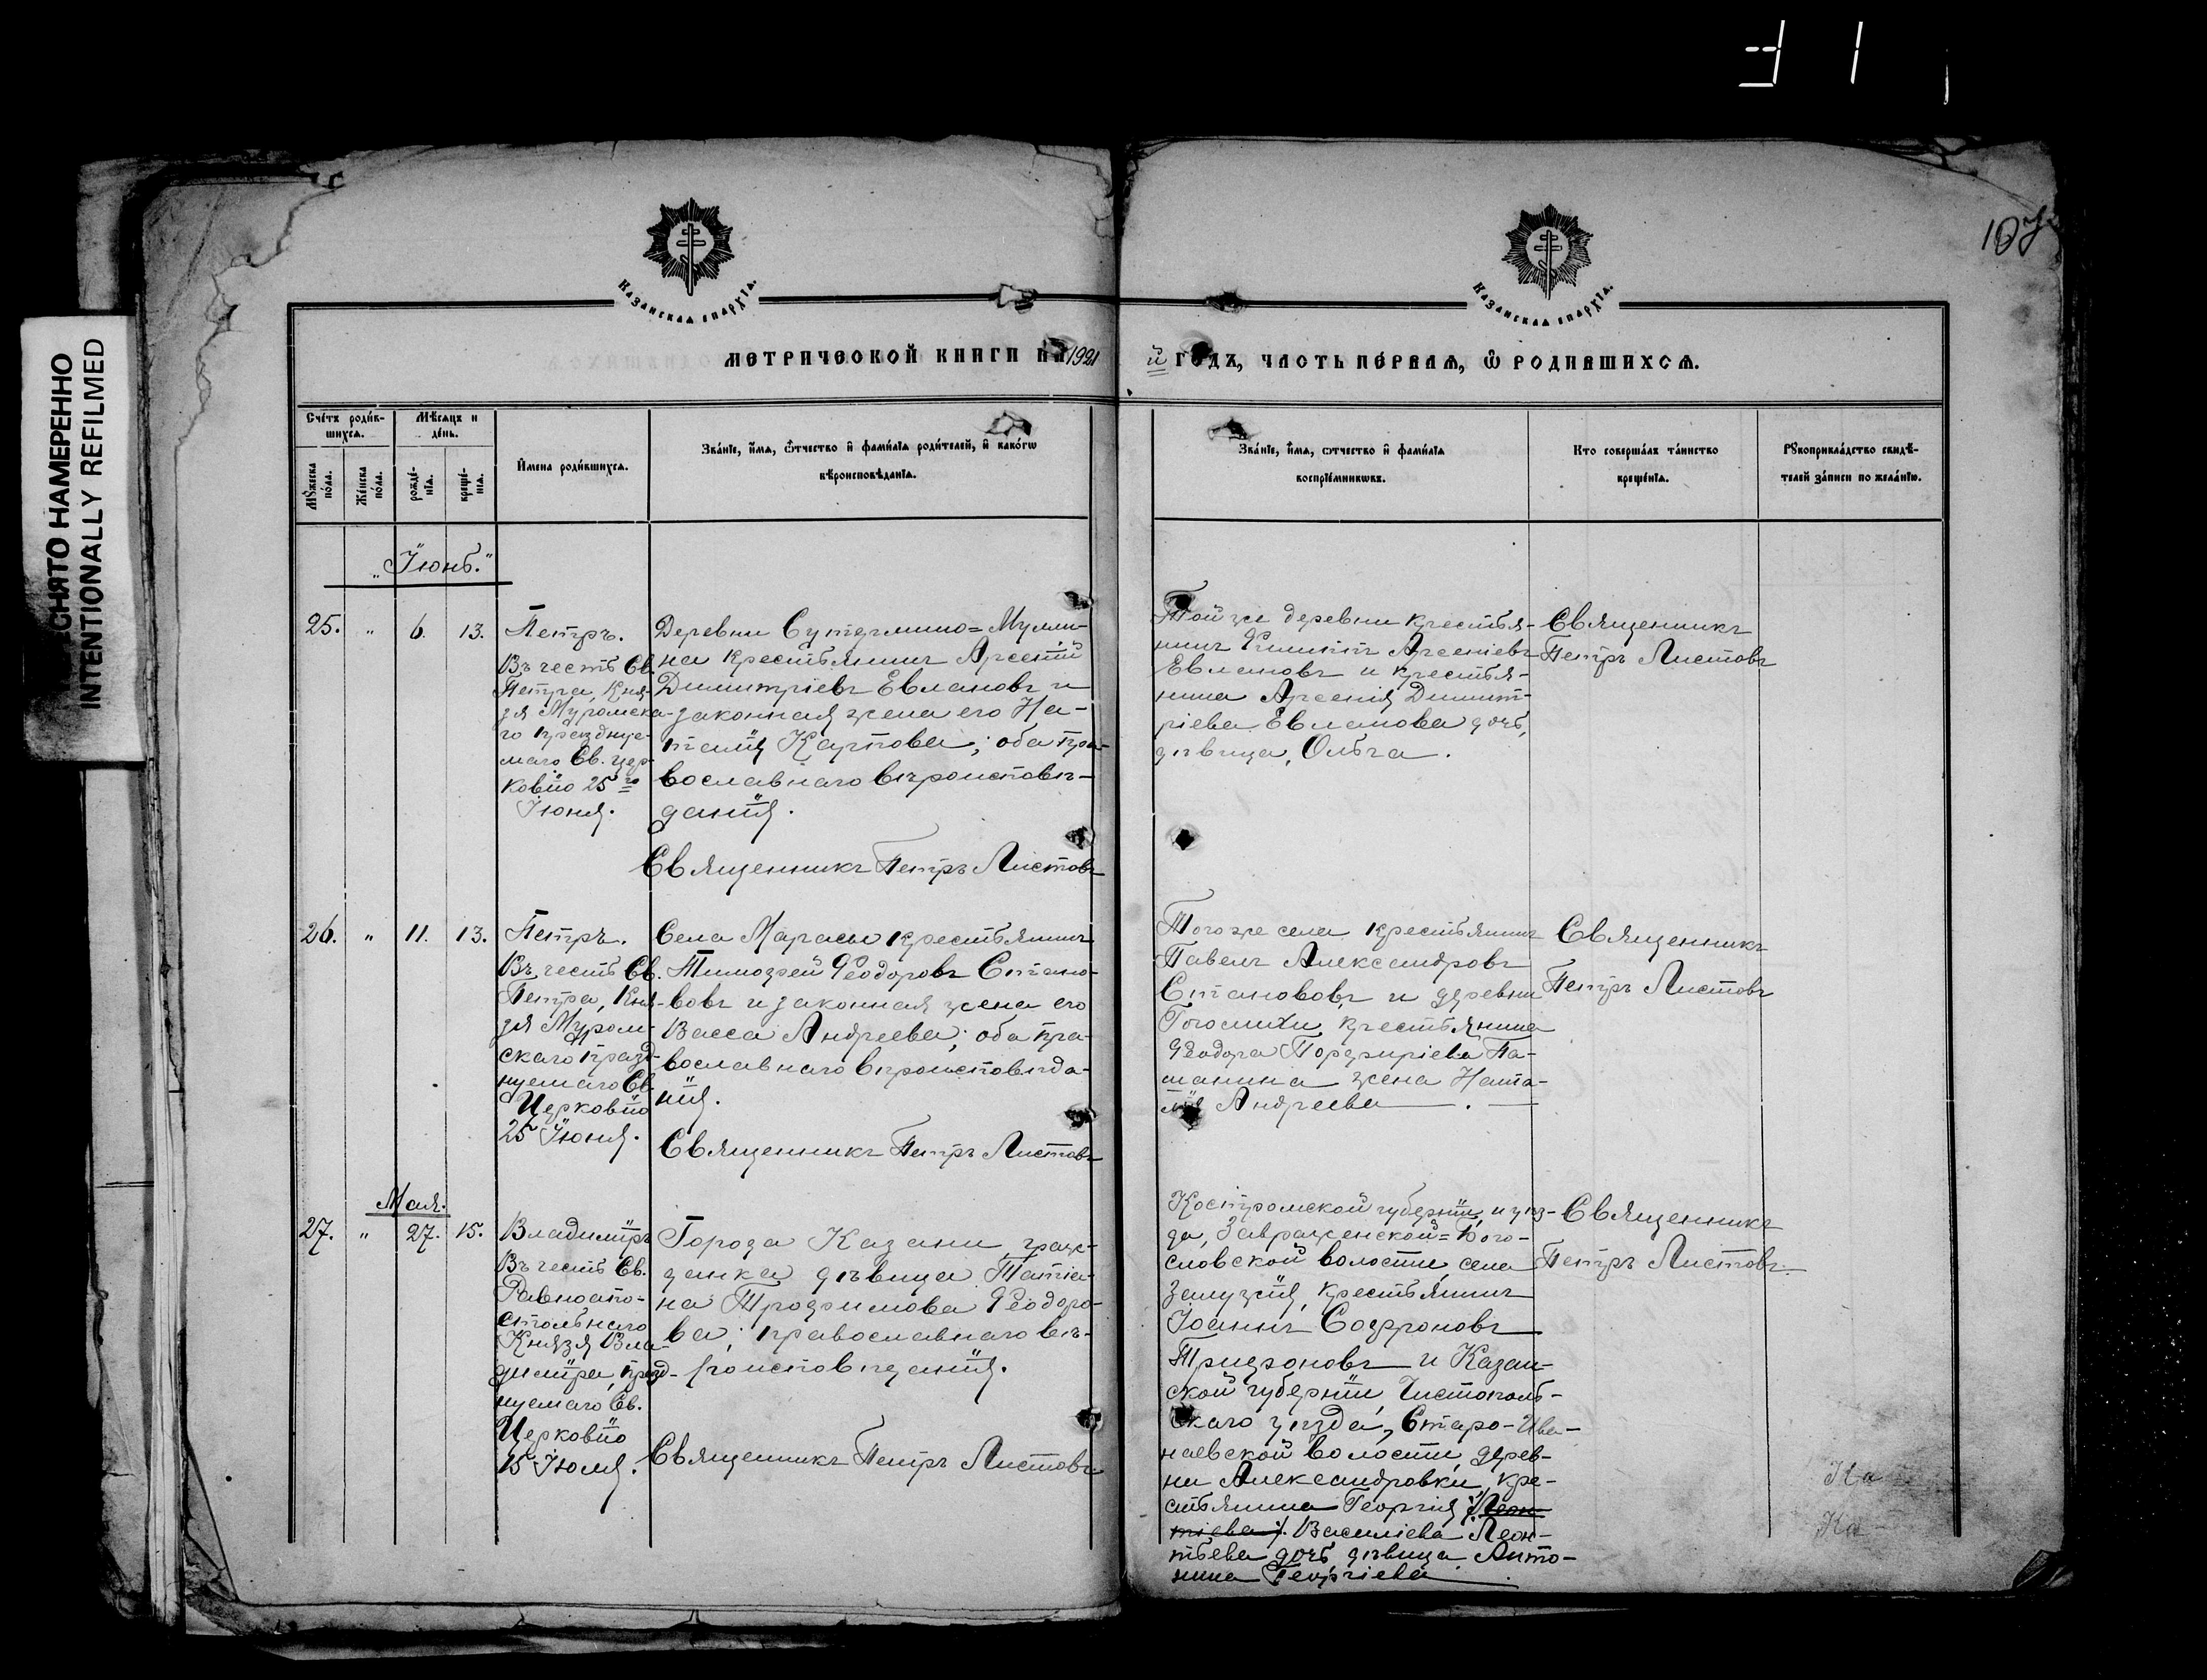 ПЕРЕСНЯТО НАМЕРЕННО
INTENTIONALLY REFILMED
107
Казанская епархіѧ.
Казанская епархіѧ.
МЕТРИЧЕСКОЙ КНИГИ НА 1921
й ГОДЪ, ЧАСТЬ ПЕРВАЯ, Ѽ РОДИВШИХСЯ.
Счетъ родив-
шихся.
Мѣсяцъ и
день.
Мужеска
пола.
Женска
пола.
рожде-
нія.
креще-
нія.
Имена родившихся.
Званіе, имя, ѿтчество и фамиліа родителей, и какогѡ
вѣроисповѣданіа.
Званіе, имя, отчество и фамиліа
воспріемникѡвъ.
Кто совершалъ таинство
крещеніа.
Рукоприкладство свидѣ-
телей записи по желанію.
„Іюнь."
25. " 6. 13.
Петръ.
Въ честь Св.
Петра, Кня-
зя Муромска-
го праздуе-
маго Св. цер-
ковію 25 го
Іюня.
Деревни Сутермино=Мулли-
на крестьянинъ Арсеній
Димитріевъ Евлановъ и
законная жена его На-
талія Карпова; оба пра-
вославнаго вѣроисповѣ-
данія.
Священникъ Петръ Листовъ
Той же деревни крестья-
нинъ Арсеніевъ
Евлановъ и крестья-
нина Арсенія Димит-
ріева Евланова дочь,
дѣвица, Ольга.
Священникъ
Петръ Листовъ
26. " 11. 13.
Петръ.
Въ честь Св.
Петра, Кня-
зя Муром-
скаго празд-
нуемаго Св.
Церковію
25 Іюня.
Села Марасы крестьянинъ
Тимофей Ѳеодоровъ Стано-
вовъ и законная жена его
Васса Андреева; оба пра-
вославнаго вѣроисповѣда-
нія.
Священникъ Петръ Листовъ
Того же села крестьянинъ
Павелъ Александровъ
Станововъ и деревни
Гоголихи, крестьянина
Ѳеодора Порфиріева Па-
манина жена Ната-
лія Андреева.
Священникъ
Петръ Листовъ
Мая.
27. " 27. 15.
Владиміръ
Въ честь Св.
Равноапо-
стольнаго
Князя Вла-
диміра, празд-
нуемаго Св.
Церковію
15 Іюля.
Города Казани граж-
данка дѣвица Татіа-
на Трофимова Ѳеодоро-
ва; православнаго вѣ-
роисповѣданія.
Священникъ Петръ Листовъ
Костромской губерніи, и уѣз-
да, Завраженской=Бого-
словской волости, села
крестьянинъ
Іоаннъ Софроновъ
Трифоновъ и Казан-
ской губерніи, Чистополь-
скаго уѣзда, Старо-Ива-
наевской волости, дерев-
ни Александровки, кре-
стьянина Георгія /:Леон-
тіева:/. Василіева Леон-
тьева дочь, дѣвица Анто-
нина Георгіева.
Священникъ
Петръ Листовъ.